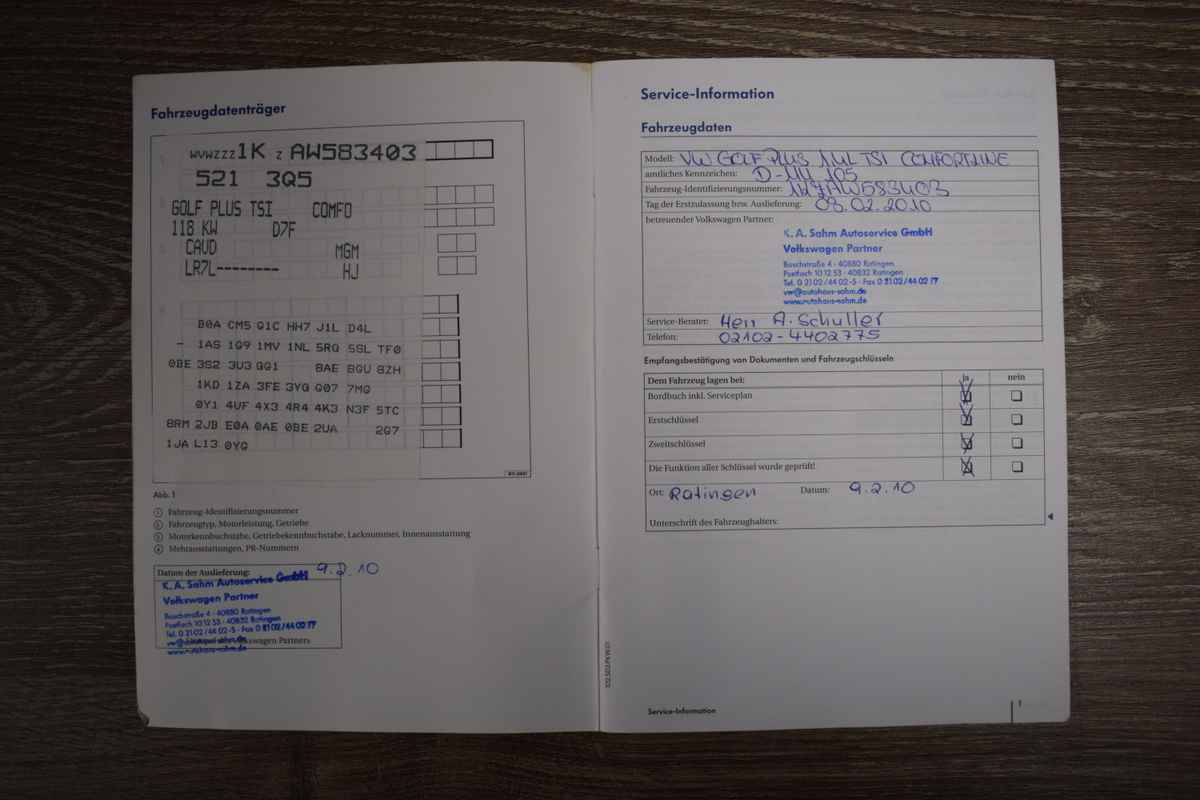 Fahrzeugdatenträger
WVWZZZ1K Z AW583403
521 3Q5
GOLF PLUS TSI COMFO
118 KW D7F
CAVD MGM
LR7L-------- HJ
B0A CM5 Q1C HH7 J1L D4L
- 1AS 1G9 1MV 1NL 5RQ 5SL TF0
0BE 3S2 3U3 GQ1 8AE 8GU 8ZH
1KD 1ZA 3FE 3YG Q07 7MG
0Y1 4UF 4X3 4R4 4K3 N3F 5TC
8RM 2JB E0A 0AE 0BE 2UA 2G7
1JA L13 0YG
Abb. 1
① Fahrzeug-Identifizierungsnummer
② Fahrzeugtyp, Motorleistung, Getriebe
③ Motorkennbuchstabe, Getriebekennbuchstabe, Lacknummer, Innenausstattung
④ Mehrausstattungen, PR-Nummern
Datum der Auslieferung: 9.2.10
K. A. Sahm Autoservice GmbH
Volkswagen Partner
Boschstraße 4 - 40880 Ratingen
Postfach 10 12 53 - 40832 Ratingen
Tel. 0 21 02 / 44 02-5 - Fax 0 21 02 / 44 02 77
vw@autohaus-sahm.de
www.autohaus-sahm.de
Service-Information
Fahrzeugdaten
Modell: VW GOLF PLUS 1.4L TSI COMFORTLINE
amtliches Kennzeichen: D-MM 105
Fahrzeug-Identifizierungsnummer: 1KZAW583403
Tag der Erstzulassung bzw. Auslieferung: 09.02.2010
betreuender Volkswagen Partner:
K. A. Sahm Autoservice GmbH
Volkswagen Partner
Boschstraße 4 - 40880 Ratingen
Postfach 10 12 53 - 40832 Ratingen
Tel. 0 21 02 / 44 02-5 - Fax 0 21 02 / 44 02 77
vw@autohaus-sahm.de
www.autohaus-sahm.de
Service-Berater: Herr A. Schuller
Telefon: 02102-4402775
Empfangsbestätigung von Dokumenten und Fahrzeugschlüsseln
Dem Fahrzeug lagen bei: ja nein
Bordbuch inkl. Serviceplan
Erstschlüssel
Zweitschlüssel
Die Funktion aller Schlüssel wurde geprüft!
Ort: Ratingen Datum: 9.2.10
Unterschrift des Fahrzeughalters:
Service-Information 1